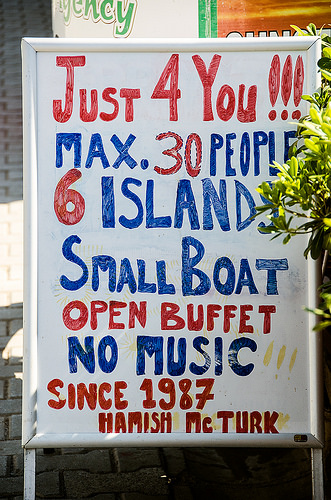 gency
JUST 4 YOU !!!
MAX. 30 PEOPLE
6 ISLANDS
SMALL BOAT
OPEN BUFFET
NO MUSIC !!!
SINCE 1987
HAMISH Mc TURK